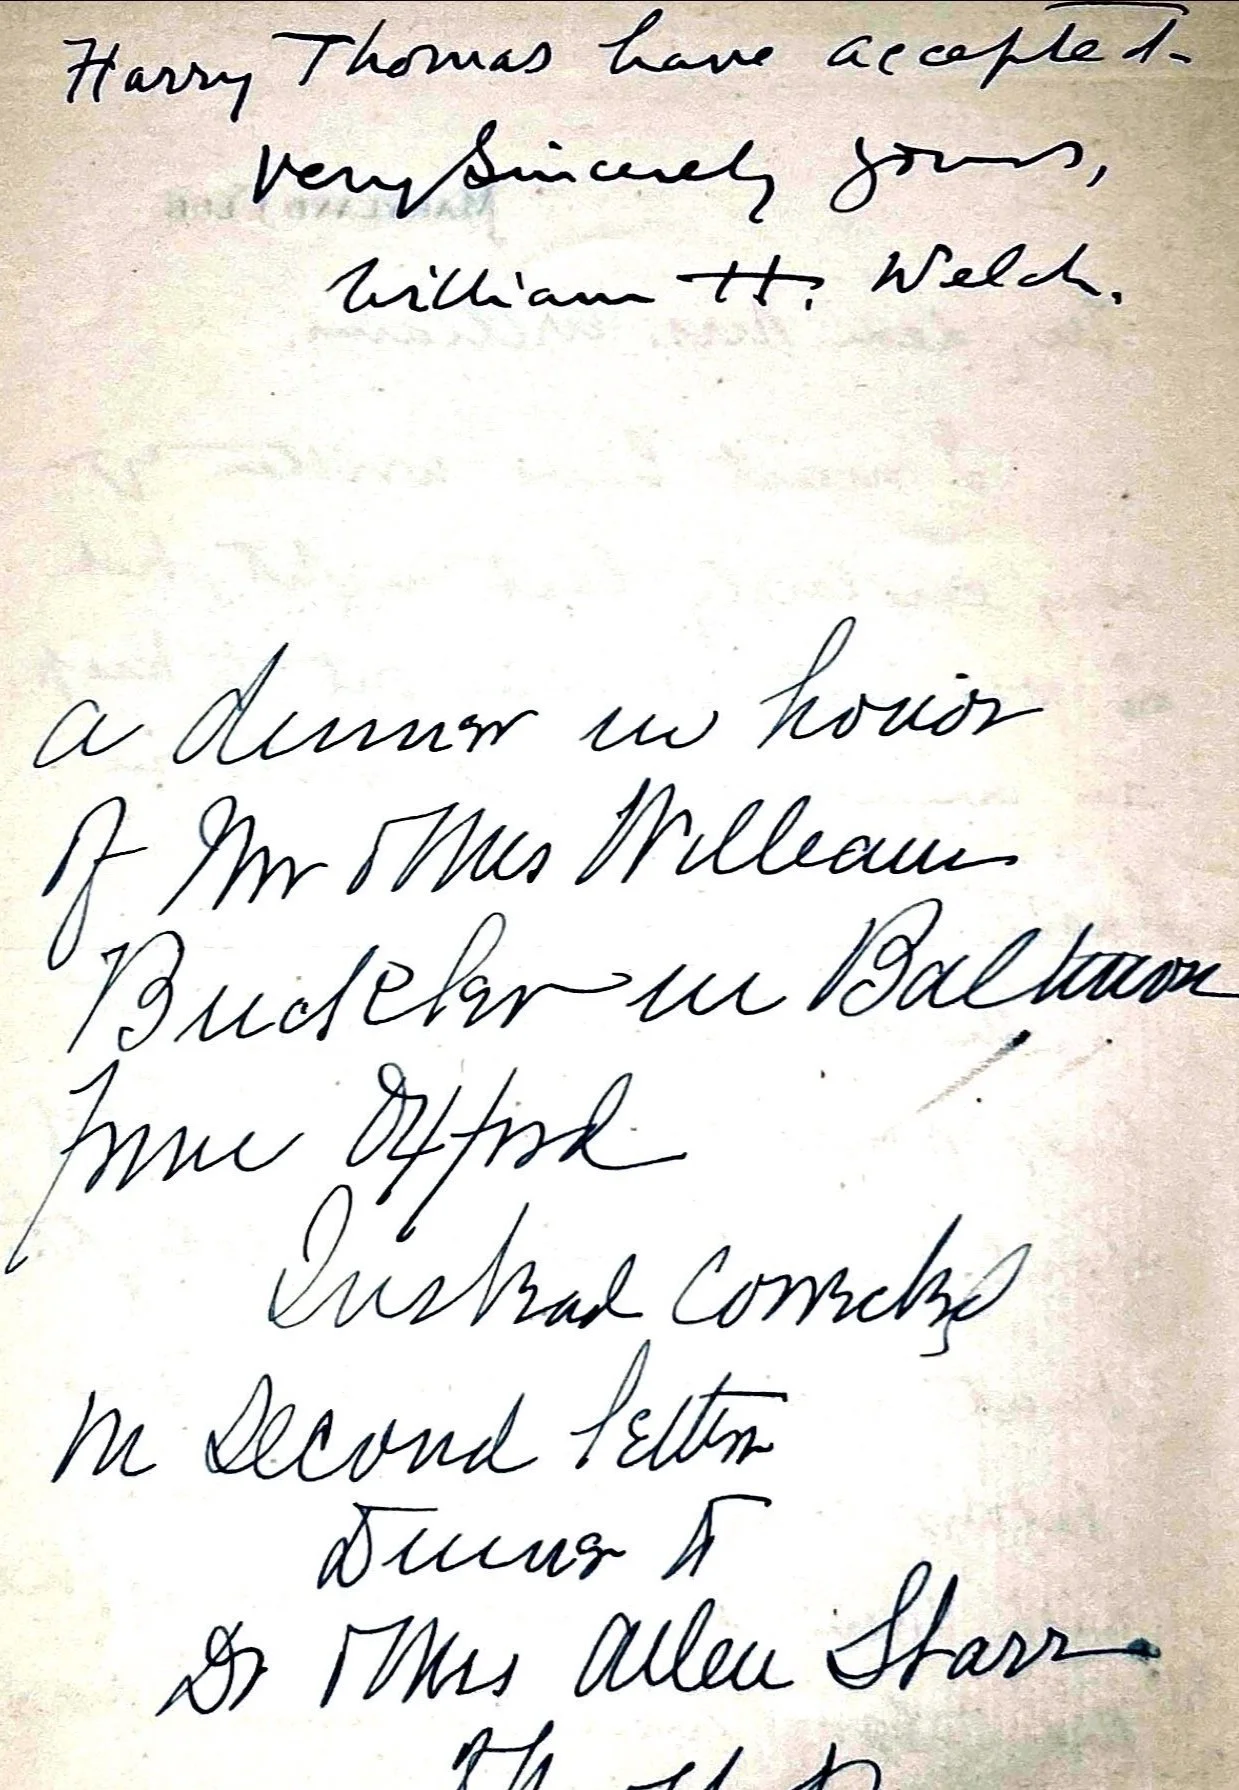 Harry Thomas have accepted.
Very Sincerely yours,
William H. Welch.
a dinner in honor
of Mr & Mrs William
Buckler in Baltimore
from Oxford
Instead corrected
in second letter
Dinner to
Dr & Mrs Allen Starr